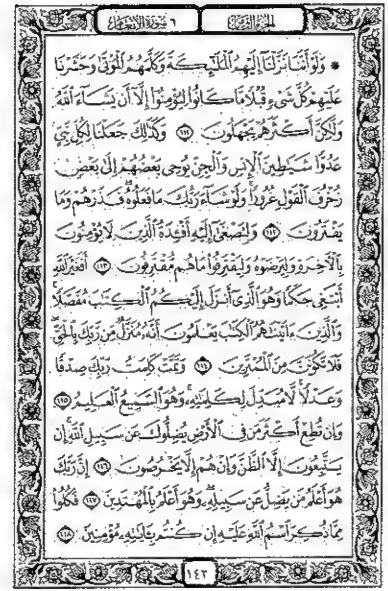 الجزء الثامن
٦ سورة الأنعام
* وَلَوْ أَنَّنَا نَزَّلْنَا إِلَيْهِمُ الْمَلَٰٓئِكَةَ وَكَلَّمَهُمُ الْمَوْتَىٰ وَحَشَرْنَا
عَلَيْهِمْ كُلَّ شَىْءٍ قُبُلًا مَّا كَانُوا لِيُؤْمِنُوا إِلَّا أَن يَشَآءَ اللَّهُ
وَلَٰكِنَّ أَكْثَرَهُمْ يَجْهَلُونَ ١١١ وَكَذَٰلِكَ جَعَلْنَا لِكُلِّ نَبِىٍّ
عَدُوًّا شَيَٰطِينَ الْإِنسِ وَالْجِنِّ يُوحِى بَعْضُهُمْ إِلَىٰ بَعْضٍ
زُخْرُفَ الْقَوْلِ غُرُورًا وَلَوْ شَآءَ رَبُّكَ مَا فَعَلُوهُ فَذَرْهُمْ وَمَا
يَفْتَرُونَ ١١٢ وَلِتَصْغَىٰٓ إِلَيْهِ أَفْـِٔدَةُ الَّذِينَ لَا يُؤْمِنُونَ
بِالْأَخِرَةِ وَلِيَرْضَوْهُ وَلِيَقْتَرِفُوا مَا هُم مُّقْتَرِفُونَ ١١٣ أَفَغَيْرَ اللَّهِ
أَبْتَغِى حَكَمًا وَهُوَ الَّذِىٓ أَنزَلَ إِلَيْكُمُ الْكِتَٰبَ مُفَصَّلًا
وَالَّذِينَ ءَاتَيْنَٰهُمُ الْكِتَٰبَ يَعْلَمُونَ أَنَّهُ مُنَزَّلٌ مِّن رَّبِّكَ بِالْحَقِّ
فَلَا تَكُونَنَّ مِنَ الْمُمْتَرِينَ ١١٤ وَتَمَّتْ كَلِمَتُ رَبِّكَ صِدْقًا
وَعَدْلًا لَّا مُبَدِّلَ لِكَلِمَٰتِهِ وَهُوَ السَّمِيعُ الْعَلِيمُ ١١٥
وَإِن تُطِعْ أَكْثَرَ مَن فِى الْأَرْضِ يُضِلُّوكَ عَن سَبِيلِ اللَّهِ إِن
يَتَّبِعُونَ إِلَّا الظَّنَّ وَإِنْ هُمْ إِلَّا يَخْرُصُونَ ١١٦ إِنَّ رَبَّكَ
هُوَ أَعْلَمُ مَن يَضِلُّ عَن سَبِيلِهِ وَهُوَ أَعْلَمُ بِالْمُهْتَدِينَ ١١٧ فَكُلُوا
مِمَّا ذُكِرَ اسْمُ اللَّهِ عَلَيْهِ إِن كُنتُم بِـَٔايَٰتِهِ مُؤْمِنِينَ ١١٨
١٤٢